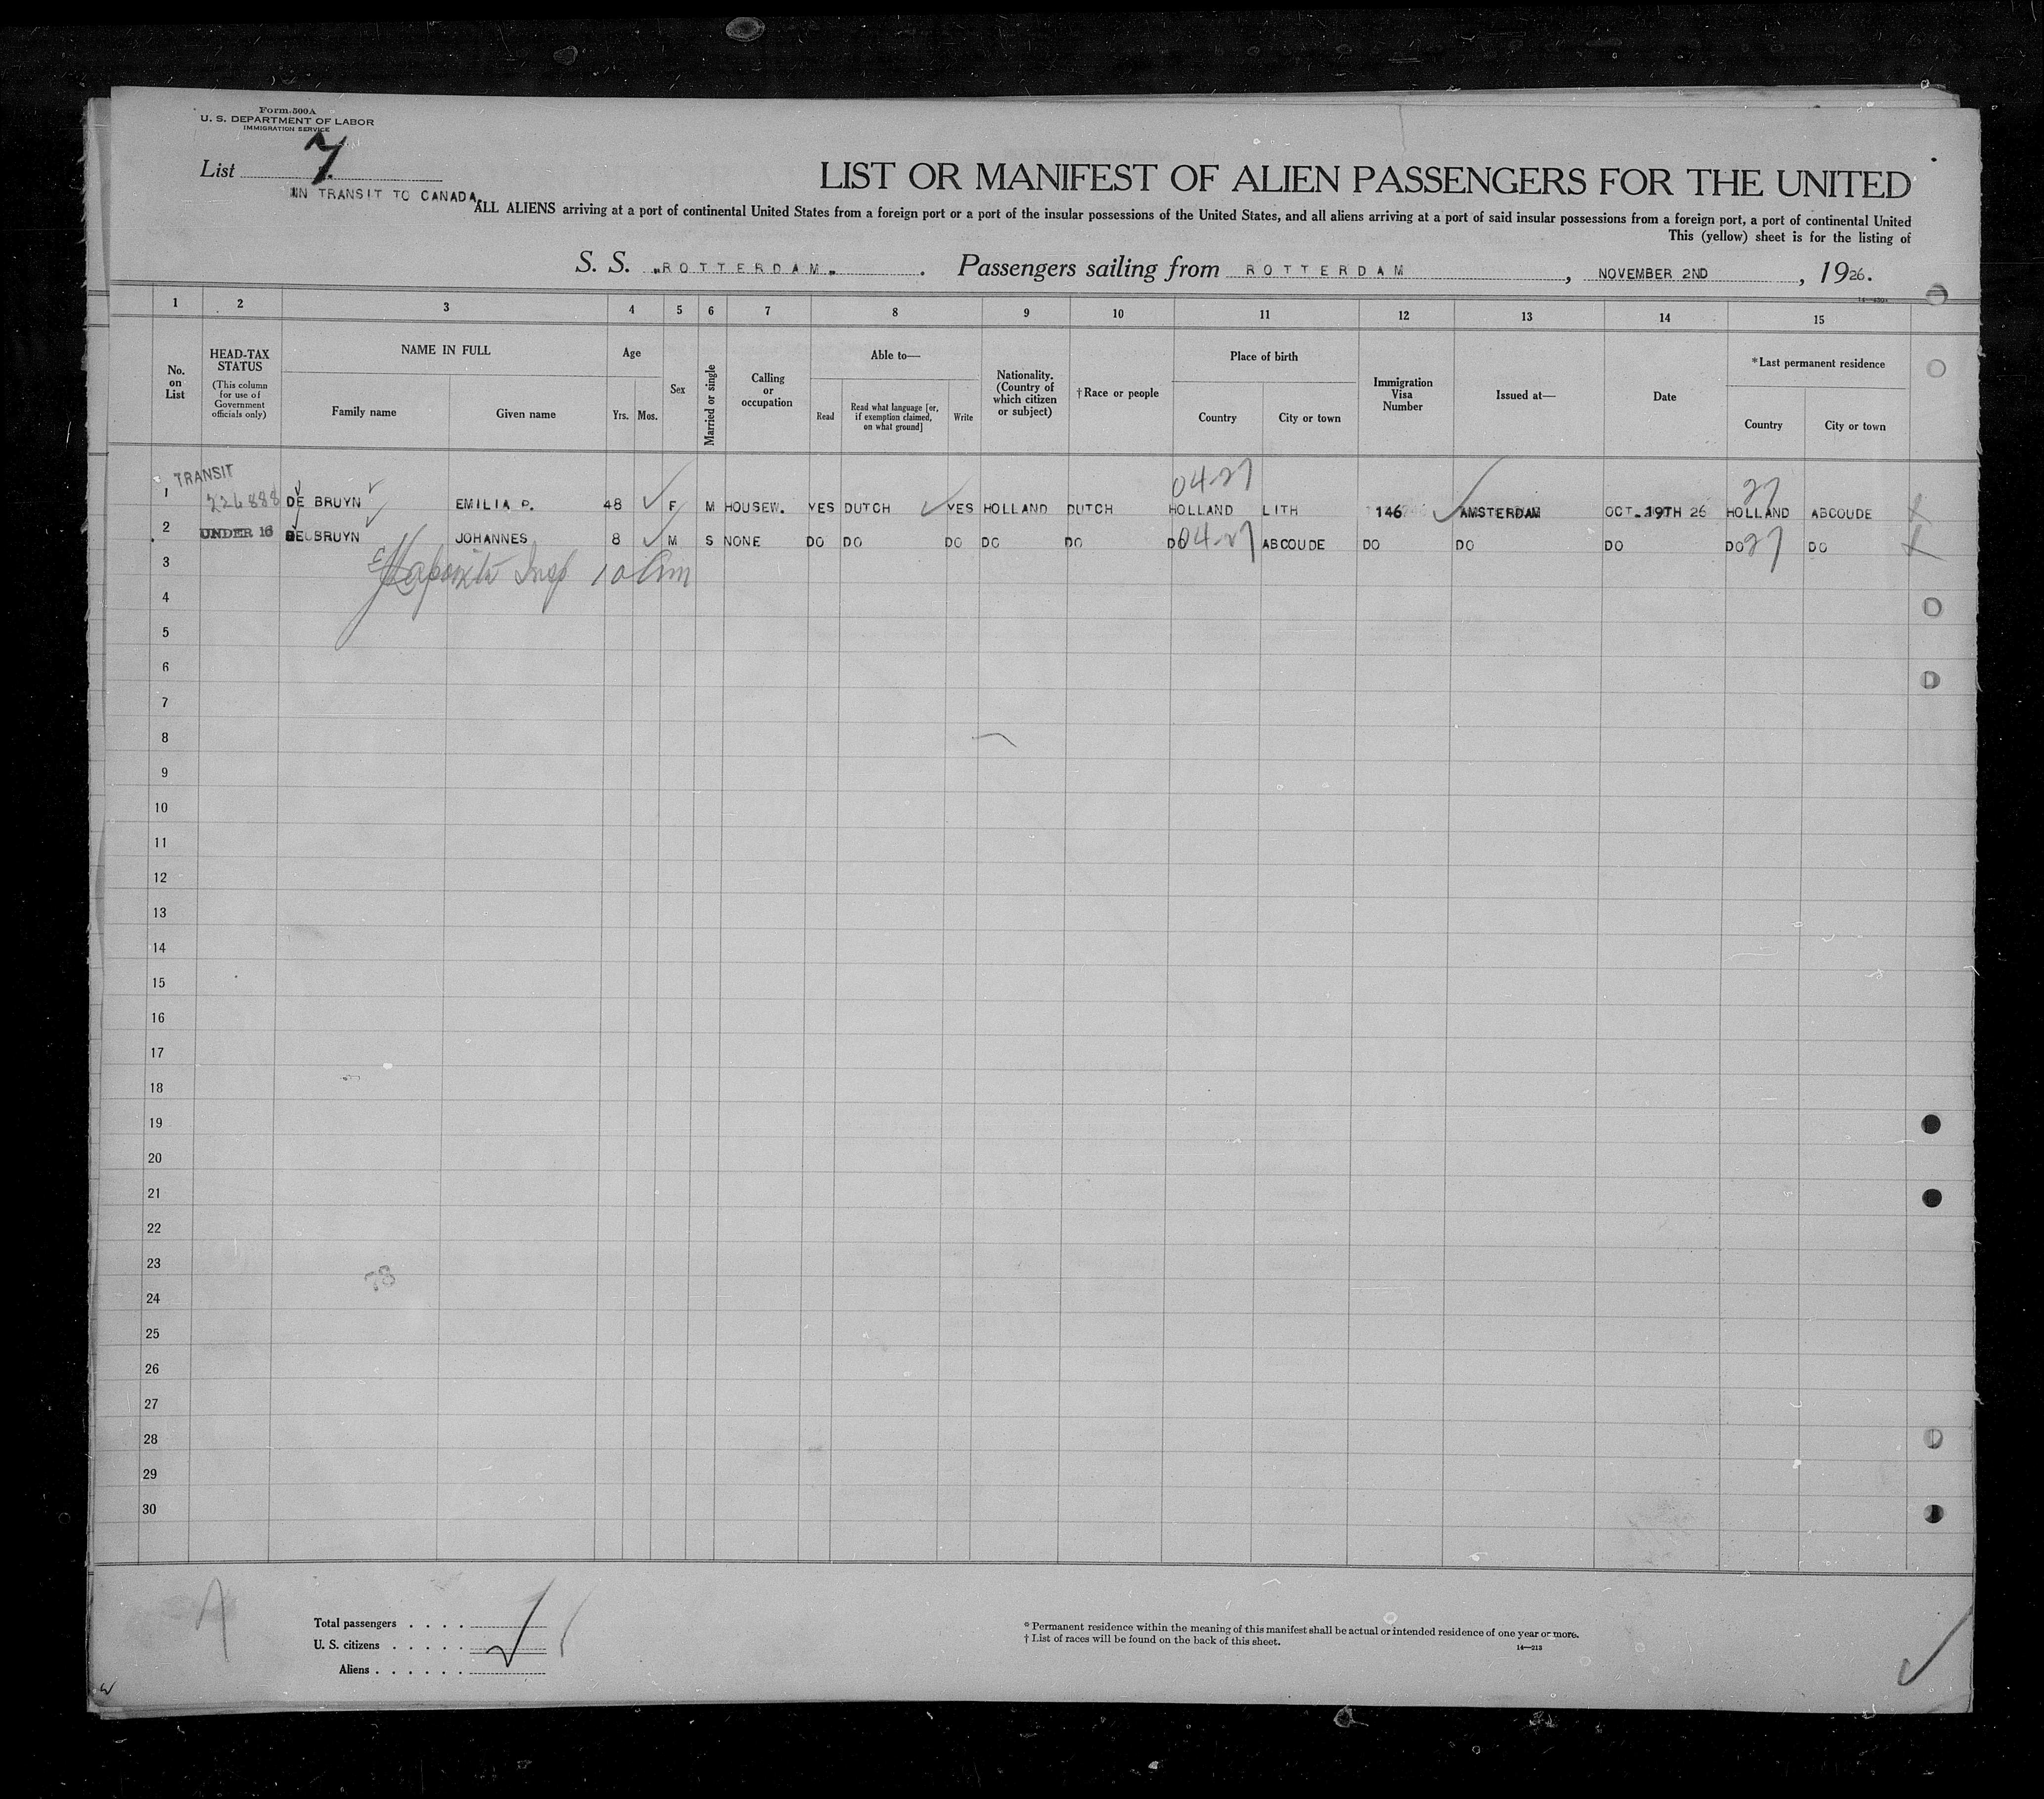 Form 500A
U. S. DEPARTMENT OF LABOR
IMMIGRATION SERVICE
List 7
IN TRANSIT TO CANADA.
LIST OR MANIFEST OF ALIEN PASSENGERS FOR THE UNITED
ALL ALIENS arriving at a port of continental United States from a foreign port or a port of the insular possessions of the United States, and all aliens arriving at a port of said insular possessions from a foreign port, a port of continental United
This (yellow) sheet is for the listing of
S. S. „ROTTERDAM„. Passengers sailing from ROTTERDAM, NOVEMBER 2ND, 1926.
1 2 3 4 5 6 7 8 9 10 11 12 13 14 15
No. on List
HEAD-TAX STATUS
(This column for use of Government officials only)
NAME IN FULL
Family name Given name
Age
Yrs. Mos.
Sex
Married or single
Calling or occupation
Able to—
Read
Read what language [or, if exemption claimed, on what ground]
Write
Nationality. (Country of which citizen or subject)
†Race or people
Place of birth
Country City or town
Immigration Visa Number
Issued at—
Date
*Last permanent residence
Country City or town
TRANSIT 04-27 27
1 226888 DE BRUYN EMILIA P. 48 F M HOUSEW. YES DUTCH YES HOLLAND DUTCH HOLLAND LITH 146 AMSTERDAM OCT.19TH 26 HOLLAND ABCOUDE
2 UNDER 16 DE BRUYN JOHANNES 8 M S NONE DO DO DO DO DO DO 04-27 ABCOUDE DO DO DO DO 27 DO
3 Insp
4
5
6
7
8
9
10
11
12
13
14
15
16
17
18
19
20
21
22
23
78
24
25
26
27
28
29
30
Total passengers . . . .
U. S. citizens . . . . .
Aliens . . . . . .
* Permanent residence within the meaning of this manifest shall be actual or intended residence of one year or more.
† List of races will be found on the back of this sheet.
14—213